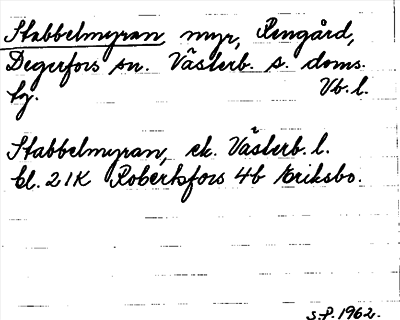 Stabbelmyran, myr, Rengård,
Degerfors sn. Västerb. s. doms.
tg. Vb. l.
Stabbelmyran, ek. Västerb. l.
bl. 21K Robertsfors 4b Eriksbo.
S.P. 1962.